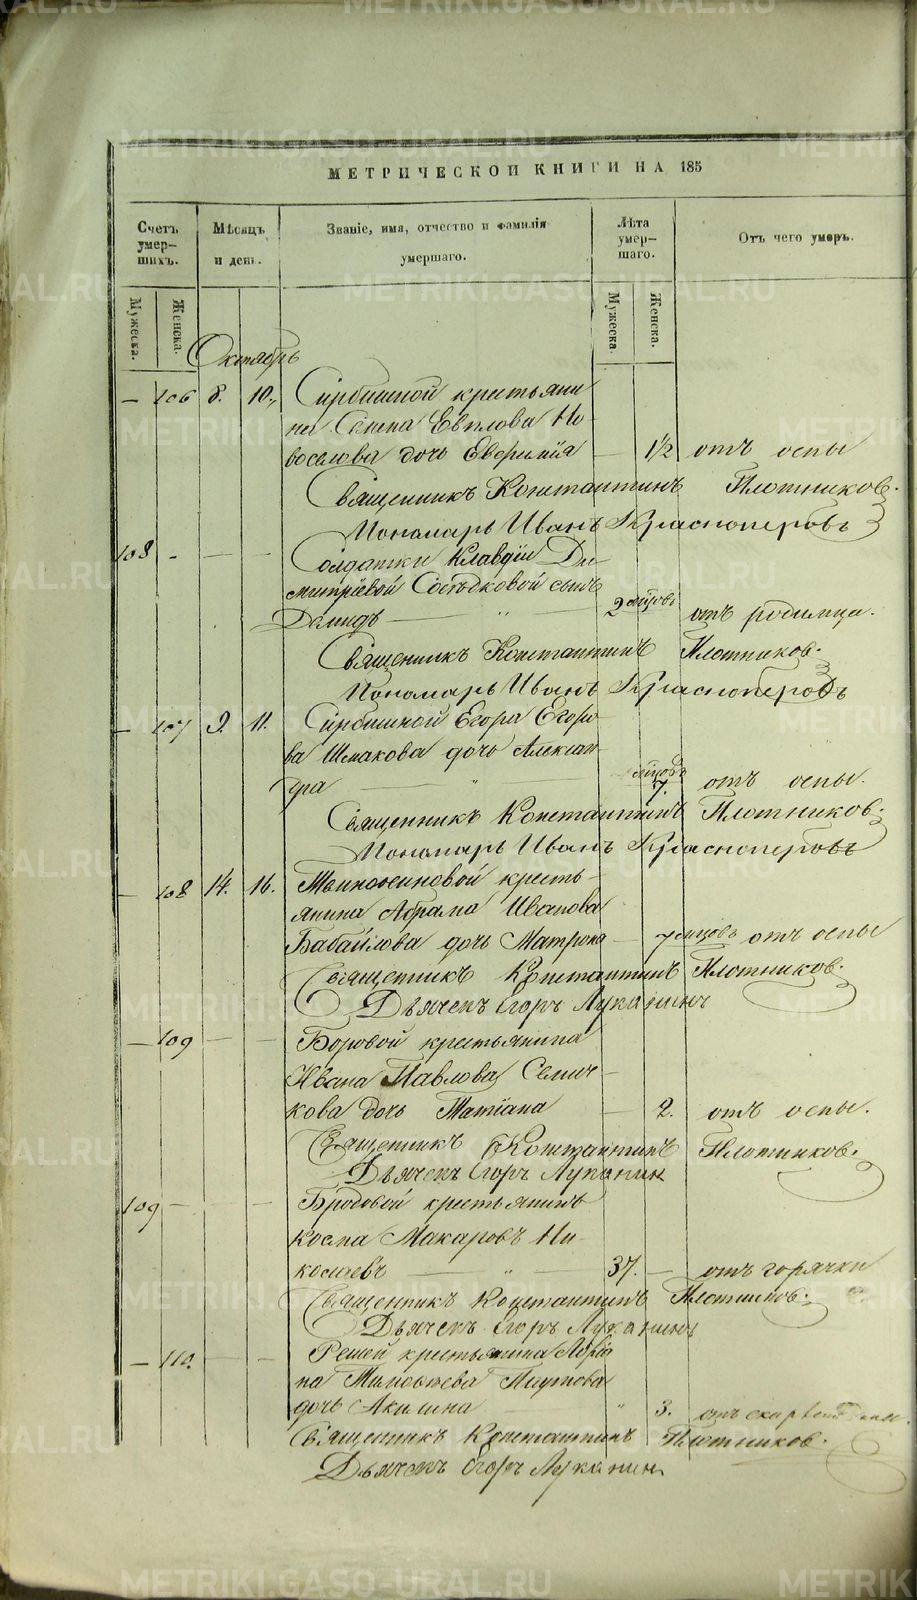 МЕТРИЧЕСКОЙ КНИГИ НА 185
Счетъ умер-шихъ. Мѣсяцъ и день. Званіе, имя, отчество и фамилія умершаго. Лѣта умер-шаго. Отъ чего умеръ.
Мужеска. Женска. Мужеска. Женска.
Октябрь
— 106 8. 10. крестьяни
на Новоселова дочь
— 1½ отъ оспы
Священникъ Константинъ Плотниковъ.
Пономарь Иванъ Красноперовъ
108 - — - Солдатки Клавдіи Ди-
митріевой Сосѣдковой сынъ
Демидъ — " — 2 мѣсяц. отъ родимца.
Священникъ Константинъ Плотниковъ.
Пономарь Иванъ Красноперовъ
- 107 9. 11. Егора Егоро-
ва Шмакова дочь Алексан-
дра — " — 7. отъ оспы.
Священникъ Константинъ Плотниковъ.
Пономарь Иванъ Красноперовъ
— 108 14. 16. кресть-
янина Абрама Иванова
Бабайлова дочь Матрона — 7 отъ оспы
Священникъ Константинъ Плотниковъ.
Дьячекъ Егоръ Луканинъ
— 109 — — Боровой крестьянина
Ивана Павлова
кова дочь Татіана — 2. отъ оспы.
Священникъ Константинъ Плотниковъ.
Дьячекъ Егоръ Луканин
109 — — - Бродовой крестьянинъ
Косма Макаровъ
— " — 37. — отъ горячки
Священникъ Константинъ Плотниковъ.
Дьячекъ Егоръ Луканинъ
— 110. — - крестьянина
дочь Акилина " 3. отъ
Священникъ Константинъ Плотниковъ.
Дьячекъ Егоръ Луканин
METRIKI.GASO-URAL.RU